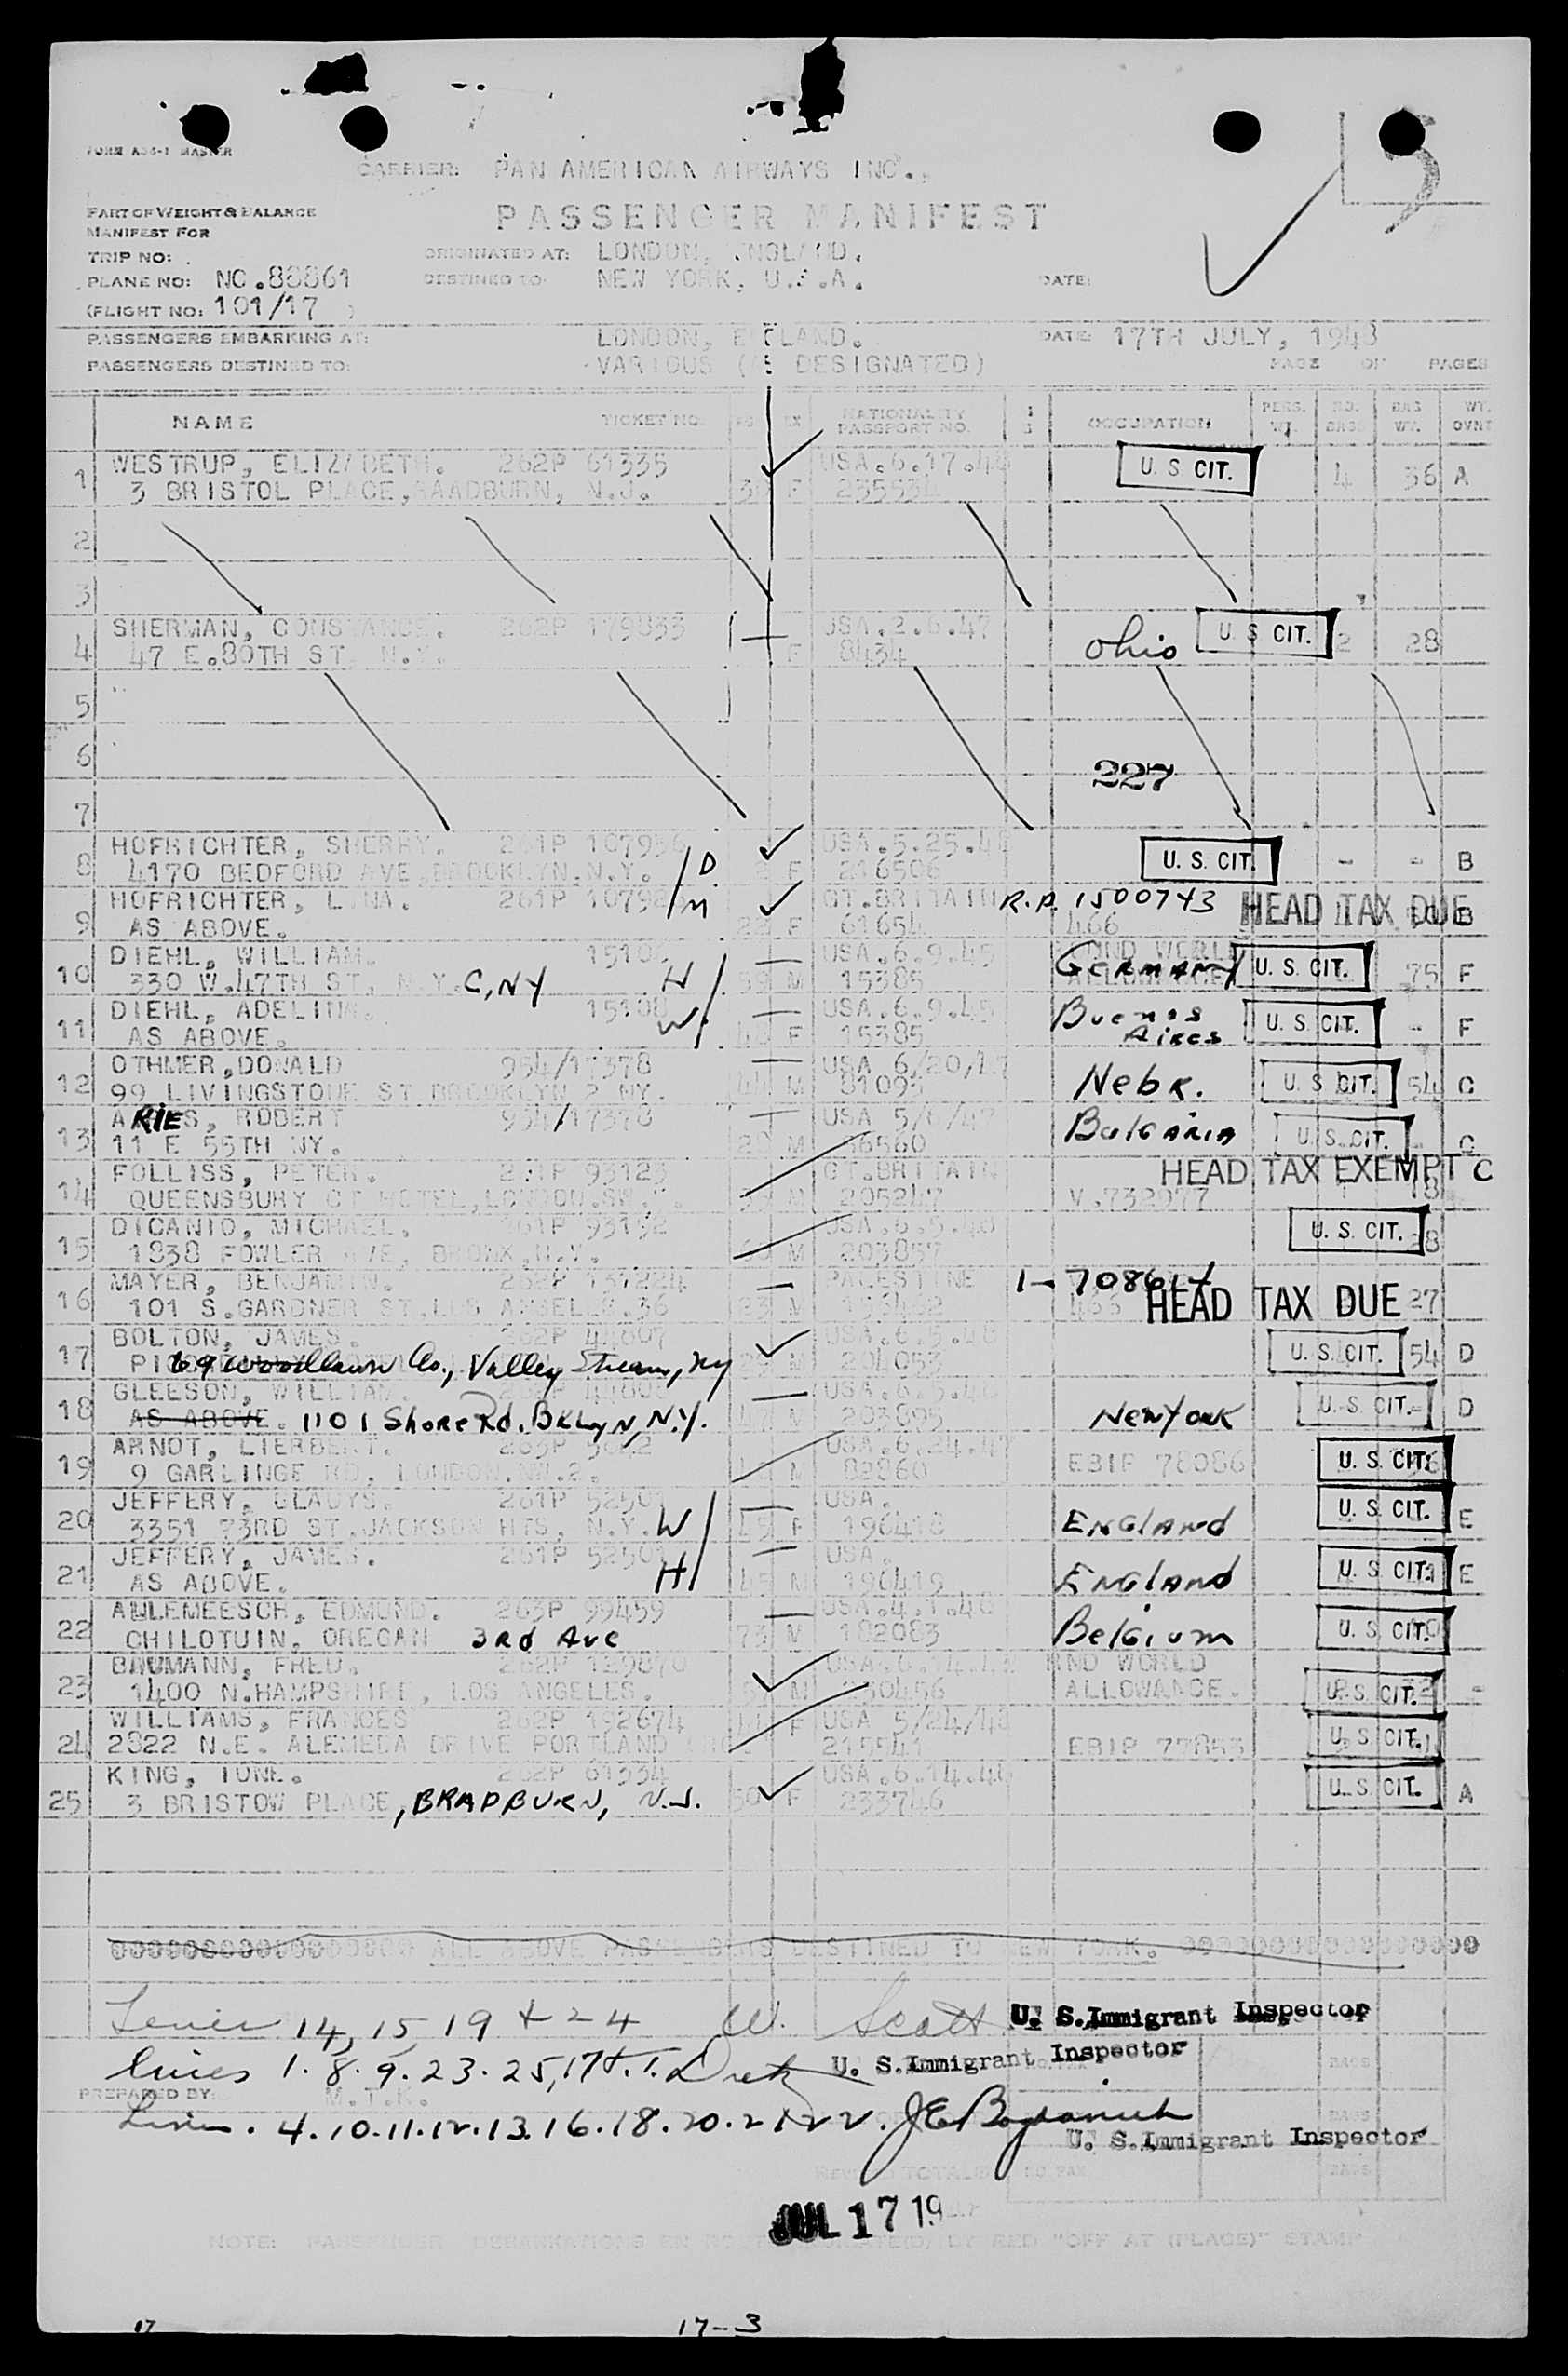 FORM A36-1 MASTER
CARRIER: PAN AMERICAN AIRWAYS INC.
PART OF WEIGHT & BALANCE
MANIFEST FOR
PASSENGER MANIFEST
TRIP NO:
ORIGINATED AT: LONDON, ENGLAND.
PLANE NO: NC.88861
DESTINED TO: NEW YORK, U.S.A.
DATE:
(FLIGHT NO: 101/17 )
PASSENGERS EMBARKING AT: LONDON, ENGLAND. DATE: 17TH JULY, 1948
PASSENGERS DESTINED TO: VARIOUS (AS DESIGNATED) PAGE OF PAGES
NAME TICKET NO. SX NATIONALITY PASSPORT NO. OCCUPATION PERS. WT. NO. BAGS BAG WT. WT. OVNT
1 WESTRUP, ELIZABETH. 262P 61335 USA.6.17.48 U. S. CIT. 4 36 A
3 BRISTOL PLACE, N.J. F
2
3
4 SHERMAN, CONSTANCE. 262P 179833 USA.2.6.47 Ohio U. S. CIT. 2 28
47 E.80TH ST, N.Y. F 8434
5
6
227
7
8 HOFRICHTER, SHERRY. 261P USA.5.25.48 U. S. CIT. - - B
4170 BEDFORD AVE, BROOKLYN.N.Y. D F 216506
9 HOFRICHTER, LENA. 261P GT.BRITAIN R.P. 1500743 HEAD TAX DUE B
AS ABOVE. M F 61654 466
10 DIEHL, WILLIAM. USA.6.9.45 GERMANY U. S. CIT. 75 F
330 W.47TH ST, N.Y.C, NY H M 15385
11 DIEHL, ADELINA. 15108 USA.6.9.45 Buenos Aires U. S. CIT. - F
AS ABOVE. W. F 15385
12 OTHMER, DONALD 954/17378 USA 6/20/47 Nebr. U. S. CIT. 54 C
99 LIVINGSTONE ST BROOKLYN 2 NY. 44 M 81095
13 ARIES, ROBERT 954/17378 USA 5/6/47 Bulgaria U. S. CIT. - C
11 E 55TH NY. M 56560
14 FOLLISS, PETER. 261P 93123 GT.BRITAIN HEAD TAX EXEMPT C
QUEENSBURY CT HOTEL, LONDON.SW.7. M 205247 V.732977 18
15 DICANIO, MICHAEL. 261P 93152 USA.6.5.48 U. S. CIT. 28
1838 FOWLER AVE, BRONX, N.Y. M 203857
16 MAYER, BENJAMIN. 262P 137224 PALESTINE HEAD TAX DUE 27
101 S.GARDNER ST, LOS ANGELES.36 23 M 466
17 BOLTON, JAMES. 262P 44807 USA.6.5.48 U. S. CIT. 54 D
69 Woodlawn Valley Stream, NY M 204053
18 GLEESON, WILLIAM. New York U. S. CIT. - D
AS ABOVE. 1101 Shore Rd. Bklyn, N.Y. 47 M 203895
19 ARNOT, 263P USA.6.24.47 U. S. CIT.
9 GARLINGE RD, LONDON.NW.2. M 82860 EBIP 78086
20 JEFFERY, GLADYS. 261P USA. ENGLAND U. S. CIT. E
3351 73RD ST. JACKSON HTS, N.Y. W 45 F 196418
21 JEFFERY, JAMES. 261P USA. ENGLAND U. S. CIT. E
AS ABOVE. H 45 M 196419
22 AULEMEESCH, EDMUND. 263P 99459 USA.4.1.48 Belgium U. S. CIT.
CHILOTUIN, OREGAN 3rd Ave 73 M 182083
23 BAUMANN, FRED. 262P 129870 2ND WORLD U. S. CIT. -
1400 N.HAMPSHIRE, LOS ANGELES. M ALLOWANCE.
24 WILLIAMS, FRANCES 262P 192674 F USA 5/24/48 U. S. CIT.
2822 N.E. ALEMEDA DRIVE PORTLAND 215541 EBIP 77853
25 KING, IONE. 262P 61334 USA.6.14.48 U. S. CIT. A
3 BRISTOW PLACE, BRADBURN, N.J. F 233746
ALL ABOVE PASSENGERS DESTINED TO NEW YORK.
14, 15, 19 + 24 W. Scott U. S. Immigrant Inspector
Lines 1. 8. 9. 23. 25, 17 U. S. Immigrant Inspector
PREPARED BY: M.T.K.
Lines. 4. 10. 11. 12. 13. 16. 18. 20. 21 22.
U. S. Immigrant Inspector
JUL 17 19
NOTE: PASSENGER DEBARKATIONS EN ROUTE INDICATE(D) BY RED "OFF AT (PLACE)" STAMP
17 17-3